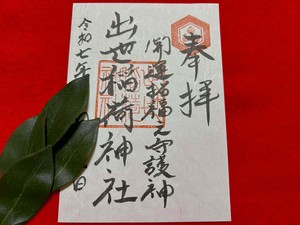 奉拝
開運招福之守護神
出世稲荷神社
令和七年
日